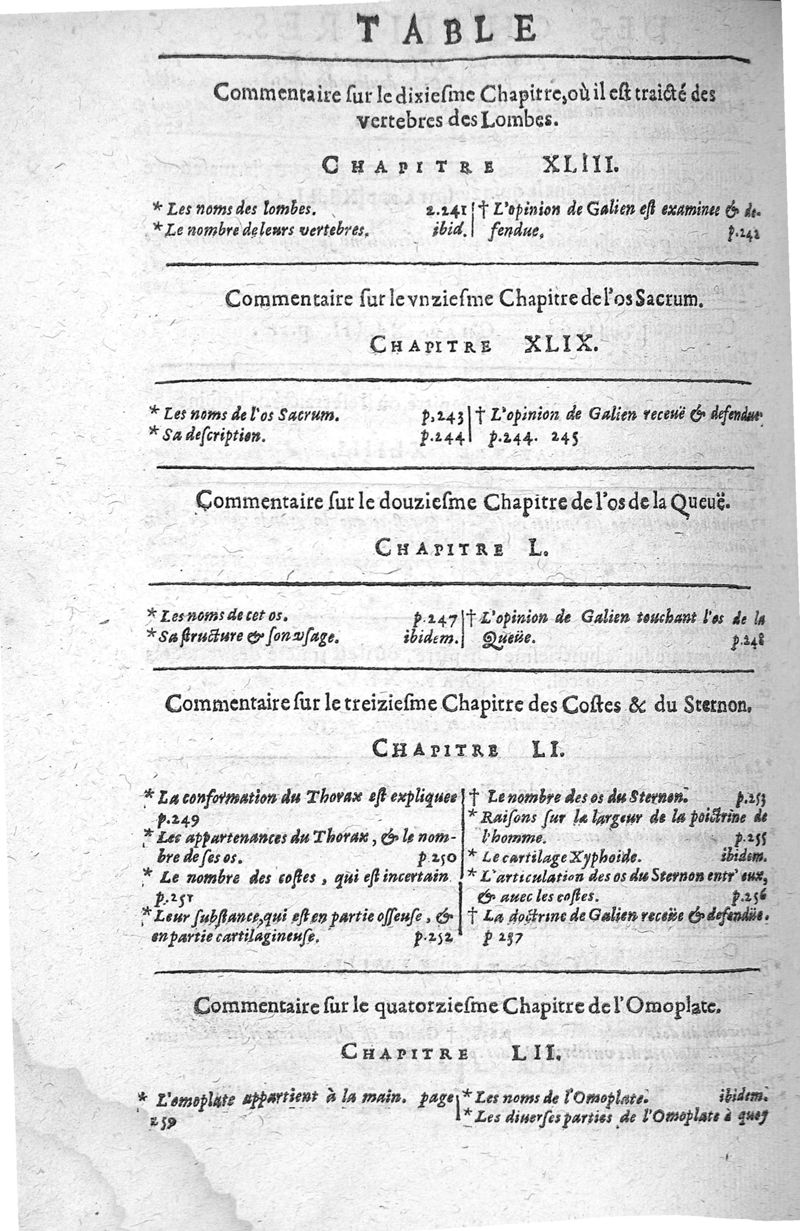 TABLE
Commentaire ſur le dixieſme Chapitre, où il eſt traicté des
vertebres des Lombes.
CHAPITRE XLIII.
* Les noms des lombes. 2.241
* Le nombre de leurs vertebres. ibid.
† L'opinion de Galien eſt examinee & de-
fendue. p.242
Commentaire ſur le vnzieſme Chapitre de l'os Sacrum.
CHAPITRE XLIX.
* Les noms de l'os Sacrum. p,243
* Sa deſcription. p.244
† L'opinion de Galien receuë & defendue
p.244. 245
Commentaire ſur le douzieſme Chapitre de l'os de la Queuë.
CHAPITRE L.
* Les noms de cet os. p.247
* Sa ſtructure & ſon vſage. ibidem.
† L'opinion de Galien touchant l'os de la
Queüe. p.248
Commentaire ſur le treizieſme Chapitre des Coſtes & du Sternon.
CHAPITRE LI.
* La conformation du Thorax eſt expliquee
p.249
* Les appartenances du Thorax, & le nom-
bre de ſes os. p 250
* Le nombre des coſtes, qui eſt incertain
p.251
* Leur ſubſtance, qui eſt en partie oſſeuſe, &
en partie cartilagineuſe. p.252
† Le nombre des os du Sternon. p.253
* Raiſons ſur la largeur de la poictrine de
l'homme. p.255
* Le cartilage Xyphoide. ibidem.
* L'articulation des os du Sternon entr' eux,
& auec les coſtes. p.256
† La doctrine de Galien receüe & defendüe.
p 257
Commentaire ſur le quatorzieſme Chapitre de l'Omoplate.
CHAPITRE LII.
* L'omoplate appartient à la main. page
259
* Les noms de l'Omoplate. ibidem.
* Les diuerſes parties de l'Omoplate à quoy